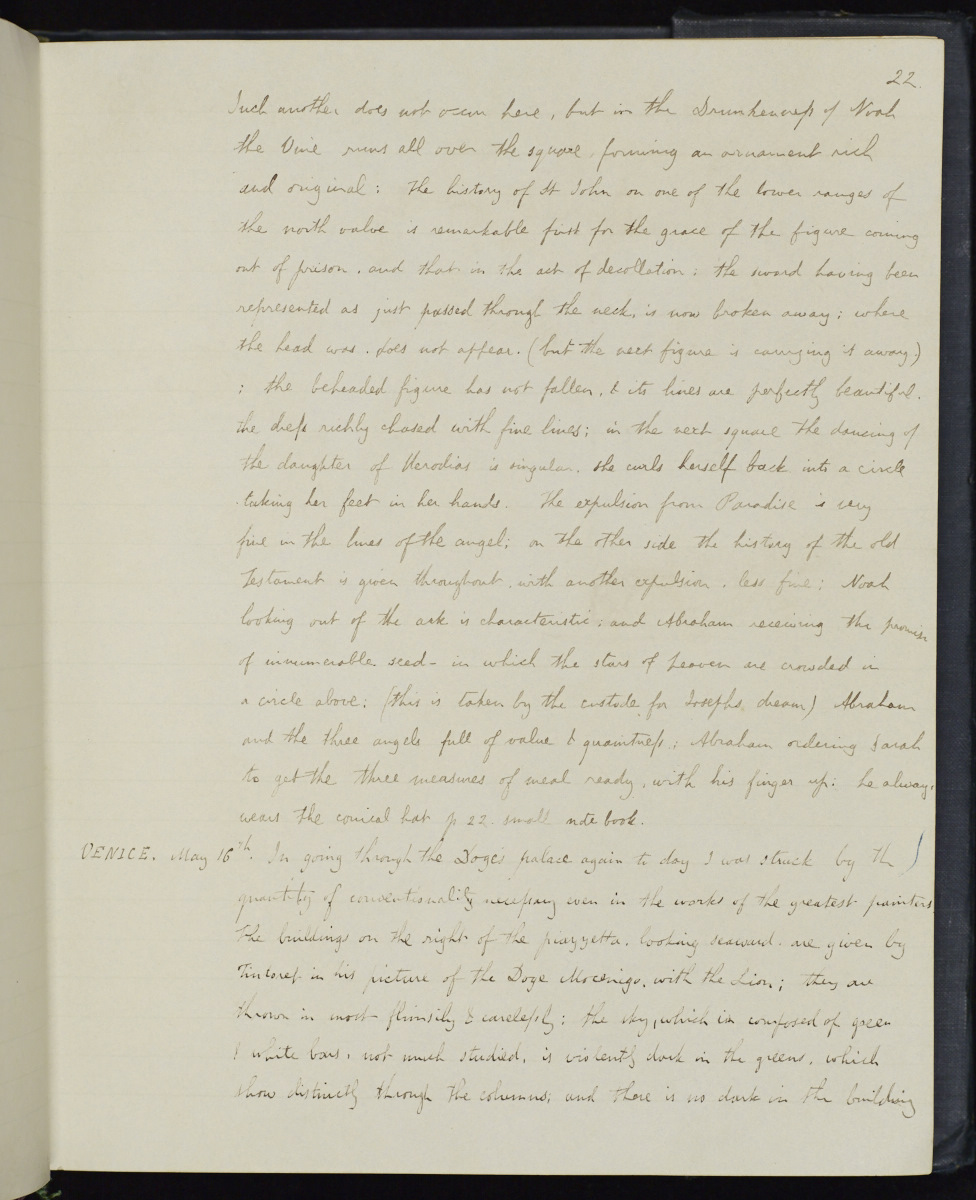 22.
Such another does not occur here, but in the Drunkenness of Noah
the Vine runs all over the square, forming an ornament rich
and original: the history of St John on one of the lower ranges of
the north valve is remarkable first for the grace of the figure coming
out of prison. and that in the act of decollation: the sword having been
represented as just passed through the neck, is now broken away; where
the head was. does not appear. (but the next figure is carrying it away)
; the beheaded figure has not fallen, & its lines are perfectly beautiful.
the dress richly chased with fine lines; in the next square the dancing of
the daughter of Herodias is singular. she curls herself back into a circle
taking her feet in her hands. The expulsion from Paradise is very
fine in the lines of the angel; on the other side the history of the old
Testament is given throughout. with another expulsion. less fine; Noah
looking out of the ark is characteristic; and Abraham receiving the promise
of innumerable seed - in which the stars of heaven are crowded in
a circle above: (this is taken by the custode for Josephs dream) Abraham
and the three angels full of value & quaintness; Abraham ordering Sarah
to get the three measures of meal ready, with his finger up: he always
wears the conical hat p 22 small note book.
VENICE. May 16th. In going through the Doge's palace again to day I was struck by the
quantity of conventionality necessary even in the works of the greatest painters.
The buildings on the right of the piazzetta. looking seaward. are given by
Tintoret in his picture of the Doge Mocenigo. with the Lion; they are
thrown in most flimsily & carelessly: the sky, which is composed of green
& white bars, not much studied, is violently dark in the greens, which
show distinctly through the columns; and there is no dark in the building